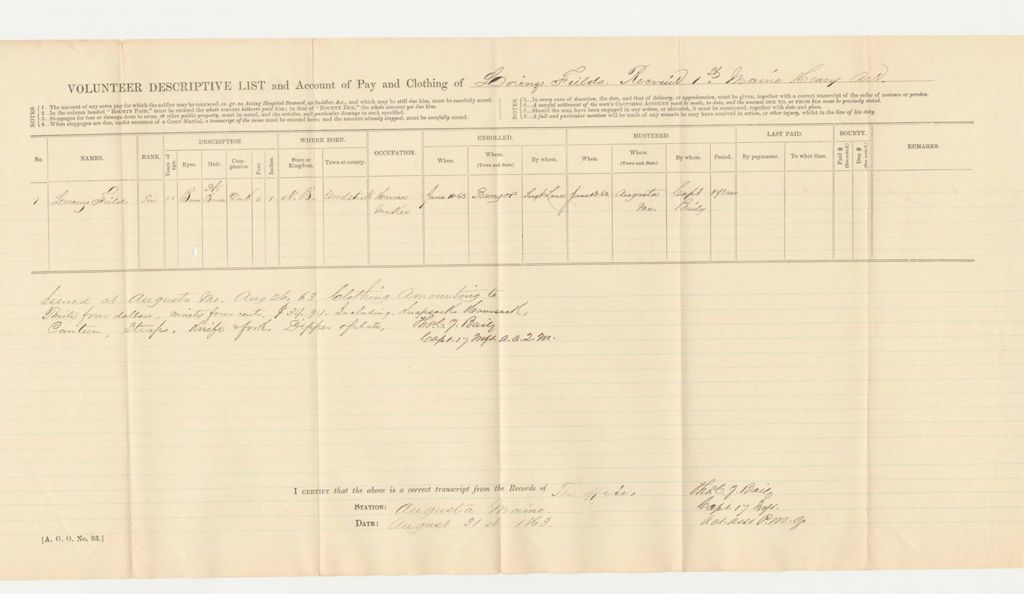 VOLUNTEER DESCRIPTIVE LIST and Account of Pay and Clothing of Lorings Fields. Recruit 1st Maine Heavy Art.
NOTES.
1. The amount of any extra pay for which the soldier may be mustered, or, gr. as Acting Hospital Steward, as Saddler, &c., and which may be still due him, must be carefully noted.
2. In the column headed "BOUNTY PAID," must be entered the whole amount hitherto paid him; in that of "BOUNTY DUE," the whole amount yet due him.
3. Stoppages for loss or damage done to arms, or other public property, must be noted, and the articles, and particular damage to each specified.
4. When stoppages are due, under sentence of a Court Martial, a transcript of the same must be entered here; and the amount already stopped, must be carefully stated.
NOTES.
5. In every case of desertion, the date, and that of delivery, or apprehension, must be given, together with a correct transcript of the order of sentence or pardon.
6. A careful settlement of the man's CLOTHING ACCOUNT must be made, to date, and the amount DUE TO, or FROM him must be precisely stated.
7. Should the man have been engaged in any action, or skirmish, it must be mentioned, together with date and place.
8. A full and particular mention will be made of any wounds he may have received in action, or other injury, whilst in the line of his duty.
DESCRIPTION. WHERE BORN. ENROLLED. MUSTERED. LAST PAID. BOUNTY.
No. NAMES. RANK. Years of age. Eyes. Hair. Complexion. Feet. Inches. State or Kingdom. Town or county. OCCUPATION. When. Where. (Town and State.) By whom. When. Where. (Town and State.) By whom. Period. By paymaster. To what time. Paid $ Due $ REMARKS.
1 Lorings Fields 6 1 N. B. Woodstock Bangor Augusta Me. Capt Baily 3 years
Issued at Augusta Me. Aug 26, 63. Clothing Amounting to
Thirty four dollars, ninety four cents, $34.94. Including Knapsack, Haversack,
Canteen, Straps, Knife & fork, Dipper & plate, Thos. C. J. Baily
Capt. 17 Inft. A. A. Q. M.
I CERTIFY that the above is a correct transcript from the Records of This office,
STATION: Augusta Maine
DATE: August 31st 1863.
Thos. C. J. Baily
Capt. 17 Inft.
Act. Asst P. M. G.
[A. G. O. No. 93.]